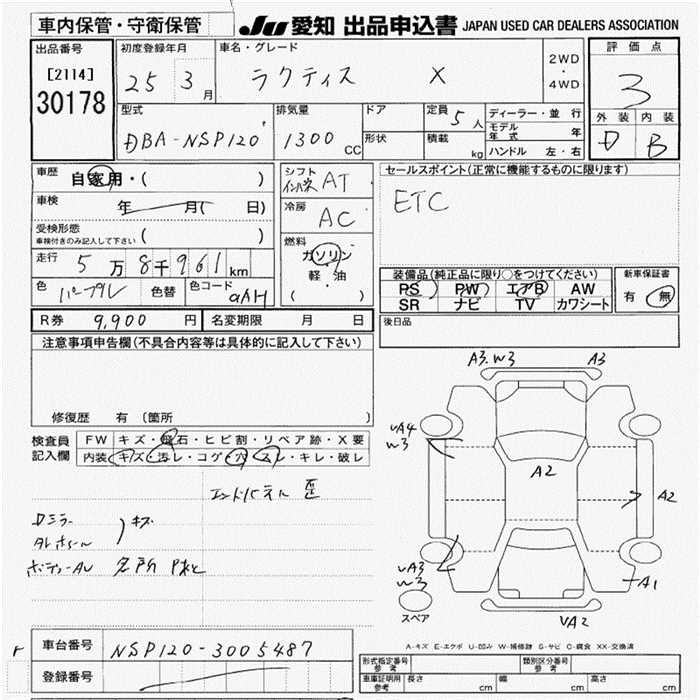 車内保管・守衛保管
JU 愛知 出品申込書 JAPAN USED CAR DEALERS ASSOCIATION
出品番号
[2114]
30178
初度登録年月
25 3 月
車名・グレード
ラクティス X
2WD
・
4WD
評価点
3
外装 内装
D B
型式
DBA-NSP120
排気量
1300 CC
ドア
形状
定員 5 人
積載 kg
ディーラー・並行
モデル年式 年
ハンドル 左・右
車歴 自家用・( )
車検 年 月( 日)
受検形態
車検付きのみ記入して下さい ( )
走行 5万8千961km
色 パープル 色替 色コード 9AH
シフト
インパネ AT
冷房
AC
燃料
ガソリン
軽・油
( )
セールスポイント(正常に機能するものに限ります)
ETC
装備品(純正品に限り○をつけてください)
PS PW エアB AW
SR ナビ TV カワシート
新車保証書
有 無
後日品
R券 9,900 円 名変期限 月 日
注意事項申告欄(不具合内容等は具体的に記入して下さい)
修復歴 有 〔箇所 〕
検査員
記入欄
FW キズ・飛石・ヒビ割・リペア跡・X要
内装 キズ・汚レ・コゲ・穴・スレ・キレ・破レ
エンドパネル 歪
Dミラー
)キズ
ボディーAU 各所 P
A3.W3 A3
UA4
W3
A2
A2
UA3
W3
A1
UA2
スペア
A-キズ E-エクボ U-凹み W-補修跡 S-サビ C-腐食 XX-交換済
車台番号 NSP120-3005487
登録番号
形式指定番号
参考
類別区分番号
参考
車庫証明用
参考
長さ cm 幅 cm 高さ cm